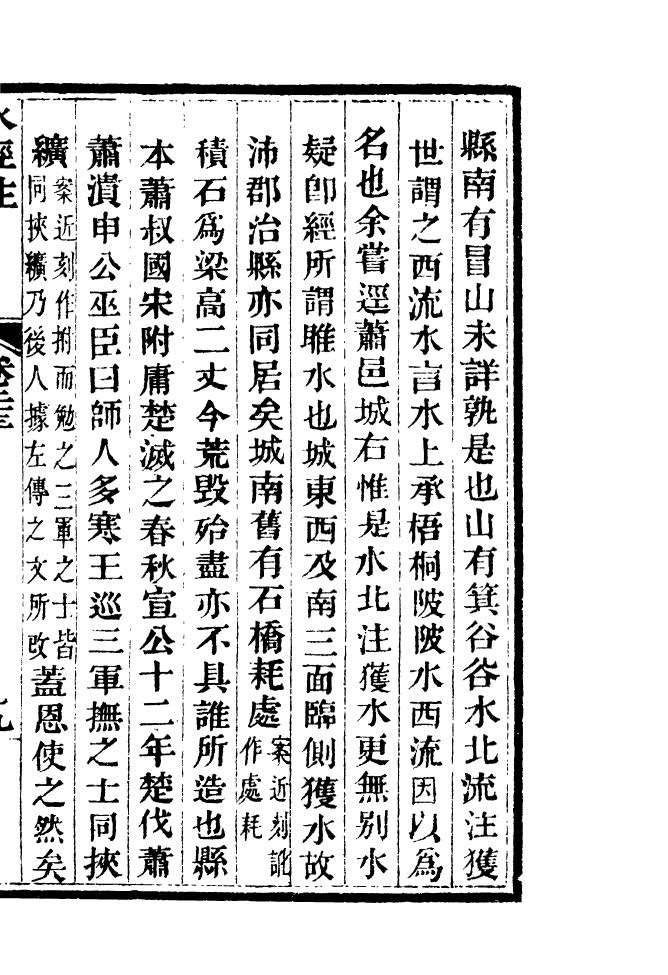 縣南有冒山未詳孰是也山有箕谷谷水北流注獲
世謂之西流水言水上承梧桐陂陂水西流因以爲
名也余嘗逕蕭邑城右惟是水北注獲水更無别水
疑卽經所謂睢水也城東西及南三面臨側獲水故
沛郡治縣亦同居矣城南舊有石橋耗處案近刻訛作處耗
積石爲梁高二丈今荒毁殆盡亦不具誰所造也縣
本蕭叔國宋附庸楚滅之春秋宣公十二年楚伐蕭
蕭潰申公巫臣曰師人多寒王巡三軍撫之士同挾
纊案近刻作拊而勉之三軍之士皆同挾纊乃後人據左傳之文所改蓋恩使之然矣
水經注 卷二十三